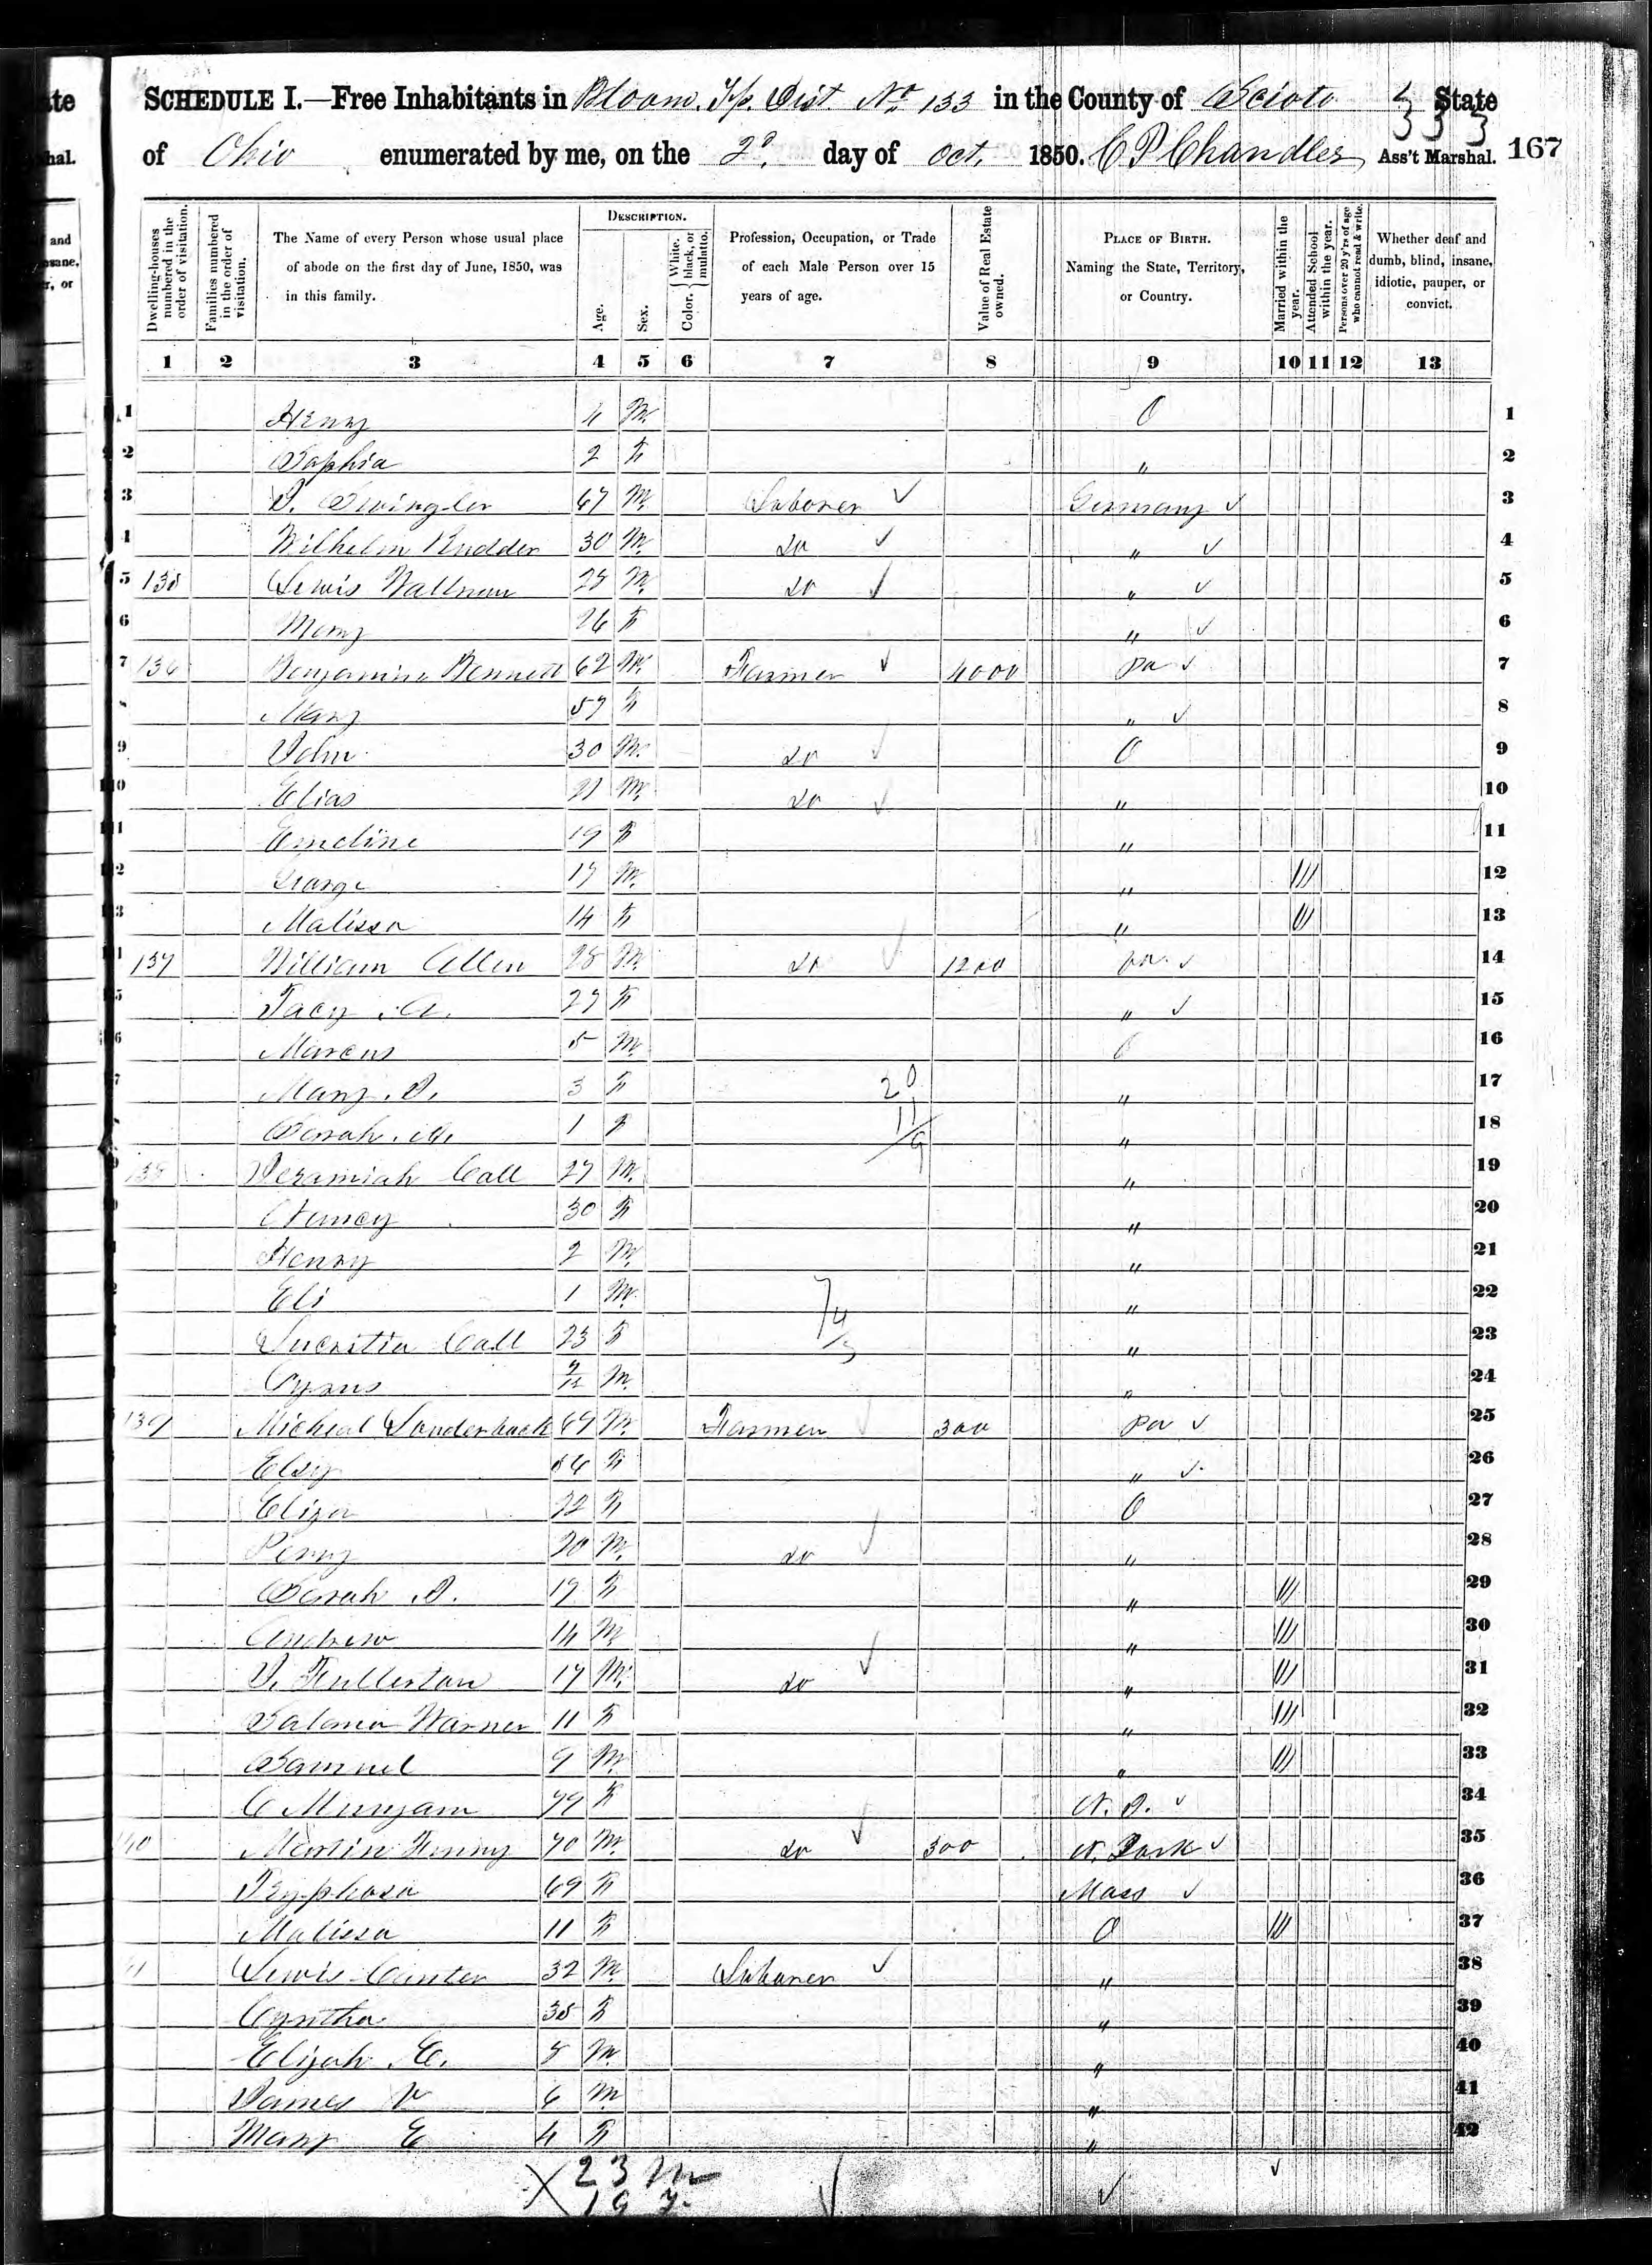 SCHEDULE I.—Free Inhabitants in Bloom Tp. Dist. No 133 in the County of Scioto State
of Ohio enumerated by me, on the 2d. day of Oct. 1850. C P Chandler Ass't Marshal. 167
333
Dwelling-houses numbered in the order of visitation.
Families numbered in the order of visitation.
The Name of every Person whose usual place of abode on the first day of June, 1850, was in this family.
DESCRIPTION.
Age.
Sex.
Color. White, black, or mulatto.
Profession, Occupation, or Trade of each Male Person over 15 years of age.
Value of Real Estate owned.
PLACE OF BIRTH. Naming the State, Territory, or Country.
Married within the year.
Attended School within the year.
Persons over 20 y'rs of age who cannot read & write.
Whether deaf and dumb, blind, insane, idiotic, pauper, or convict.
1 2 3 4 5 6 7 8 9 10 11 12 13
1 Henry 4 M O 1
2 Sophia 2 F " 2
3 67 M Laborer ✓ Germany ✓ 3
4 Wilhelm Rudder 30 M do ✓ " ✓ 4
5 135 Lewis 28 M do ✓ " ✓ 5
6 Mary 26 F " ✓ 6
7 136 Benjamin Bennett 62 M Farmer ✓ 4000 Pa ✓ 7
8 Mary 57 F " ✓ 8
9 John 30 M do ✓ O 9
10 Elias 21 M do ✓ " 10
11 Emeline 19 F " 11
12 George 17 M " /// 12
13 Malissa 14 F " /// 13
14 137 William Allen 28 M do ✓ 1200 Pa ✓ 14
15 Tacy A. 27 F " ✓ 15
16 Marcus 5 M O 16
17 Mary J. 3 F 20 " 17
18 Sarah 1 F 11/9 " 18
19 138 Jeramiah Call 27 M " 19
20 Nancy 30 F " 20
21 Henry 2 M " 21
22 Eli 1 M 7 " 22
23 Lucritia Call 23 F 4/3 " 23
24 Cyrus M " 24
25 139 Micheal Louderback 69 M Farmer ✓ 300 Pa ✓ 25
26 Elsy 56 F " ✓ 26
27 Eliza 22 F O 27
28 Perry 20 M do ✓ " 28
29 Sarah J. 17 F " /// 29
30 Andrew 14 M " /// 30
31 J. Fullerton 17 M do ✓ " /// 31
32 Warner 11 F " /// 32
33 Samuel 9 M " /// 33
34 C 79 F N. J. ✓ 34
35 140 Martin 70 M do ✓ 300 N. York ✓ 35
36 Tryphosa 69 F Mass ✓ 36
37 Malissa 11 F O /// 37
38 Lewis Canter 32 M Laborer ✓ " 38
39 Cyntha 38 F " 39
40 Elijah E. 8 M " 40
41 James V 6 M " 41
42 Mary E 4 F " 42
X 23 M
19 F